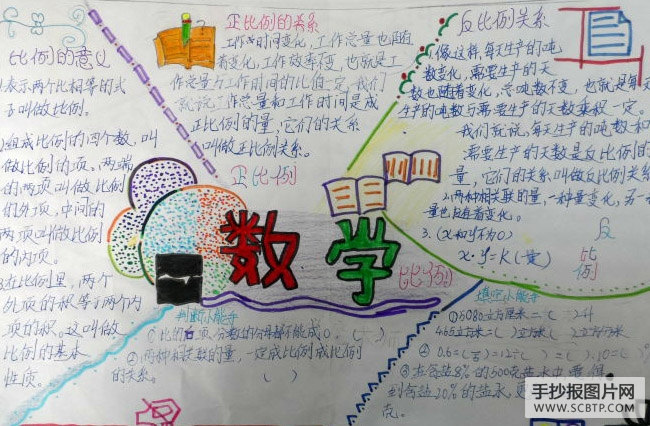 比例的意义
1.表示两个比相等的式
子叫做比例。
2.组成比例的四个数，叫
做比例的项。两端
的两项叫做比例
的外项，中间的
两项叫做比例
的内项。
3.在比例里，两个
外项的积等于两个内
项的积。这叫做
比例的基本
性质。
正比例的关系
工作时间变化，工作总量也随
着变化，工作效率不变，也就是工
作总量与工作时间的比值一定，我们
就说工作总量和工作时间是成
正比例的量，它们的关系
叫做正比例关系。
正比例
反比例关系
1.像这样，每天生产的吨
数变化，需要生产的天
数也随着变化，总吨数不变，也就是每天
生产的吨数与需要生产的天数乘积一定。
我们就说，每天生产的吨数和
需要生产的天数是反比例的
量，它们的关系叫做反比例关系
2.两种相关联的量，一种量变化，另一
量也随着变化。
3.(x和y不为0)
x·y=K(一定)
反
比
例
数学
比例
判断小能手
①比的后项，分数的分母都不能成0。( )
②两种相关联的量，一定成比例成比例
的关系。 ( )
填空小能手
①5080立方厘米=( )升
4.65立方米=( )立方米( )立方分米
③在含盐8%的500克盐水中，要得
到含盐20%的盐水，要
克。
手抄报图片网
WWW.SCBTP.COM